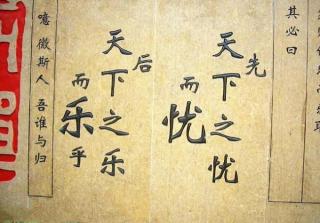 其必曰
先
天下之忧
而忧
后
天下之乐
而乐乎
噫微斯人 吾谁与归